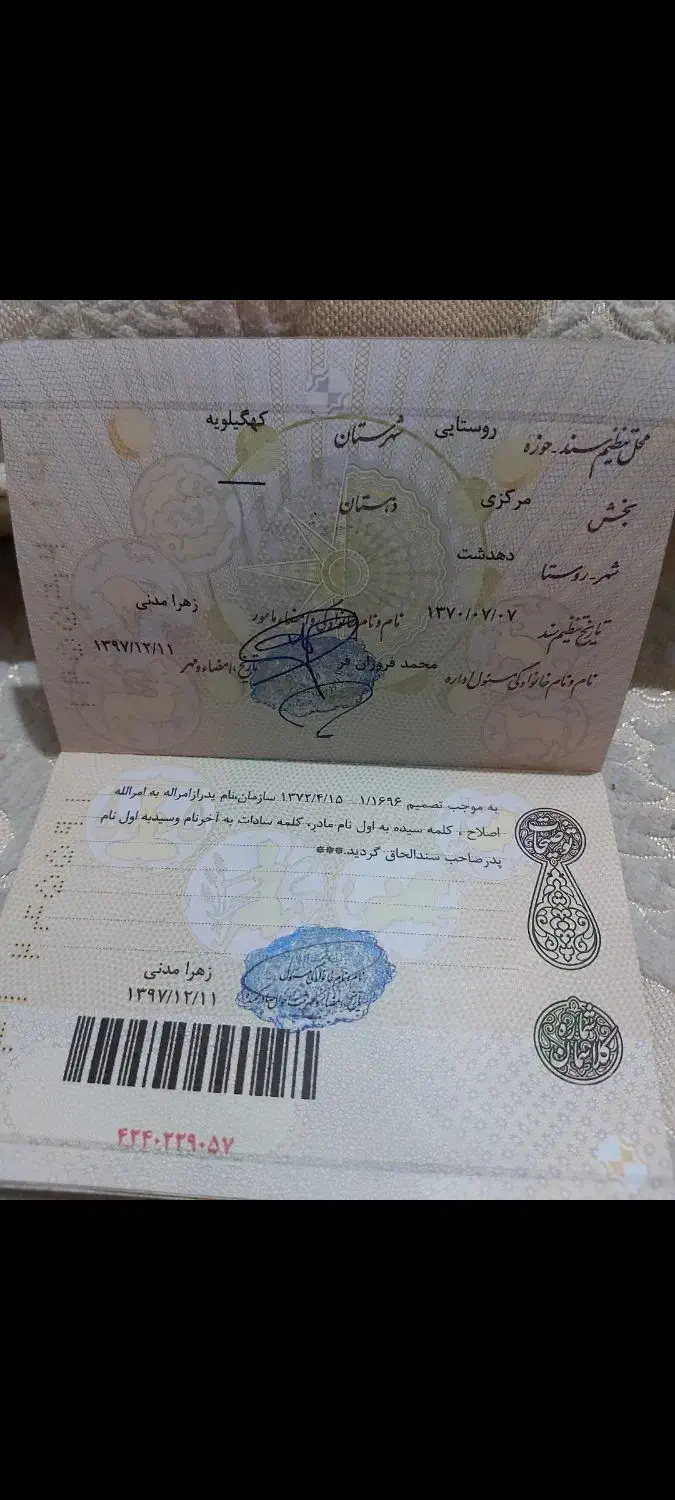 محل تنظیم سند - حوزه روستایی شهرستان کهگیلویه
بخش مرکزی دهستان —
شهر - روستا دهدشت
تاریخ تنظیم سند ۱۳۷۰/۰۷/۰۷ نام و نام خانوادگی و امضاء مامور زهرا مدنی
نام و نام خانوادگی مسئول اداره محمد فروزان فر تاریخ، امضاء و مهر ۱۳۹۷/۱۲/۱۱
توضیحات
به موجب تصمیم ۱/۱۶۹۶ ... ۱۳۷۲/۴/۱۵ سازمان،نام پدرازامراله به امرالله
اصلاح ، کلمه سیده به اول نام مادر، کلمه سادات به آخرنام وسیدبه اول نام
پدرصاحب سندالحاق گردید.***
نام و نام خانوادگی مسئول
زهرا مدنی
۱۳۹۷/۱۲/۱۱
شماره
۴۲۴۰۲۲۹۰۵۷